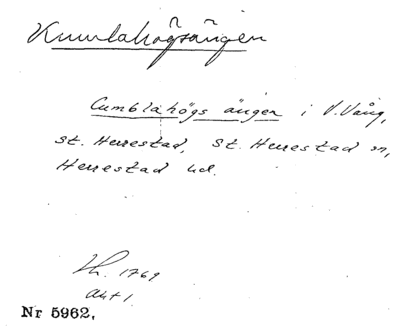 Kumlahögsängen
Cumblahögs ängen i V. Vång,
St. Herrestad, St. Herrestad sn,
Herrestad hd.
1769
akt 1.
Nr 5962.